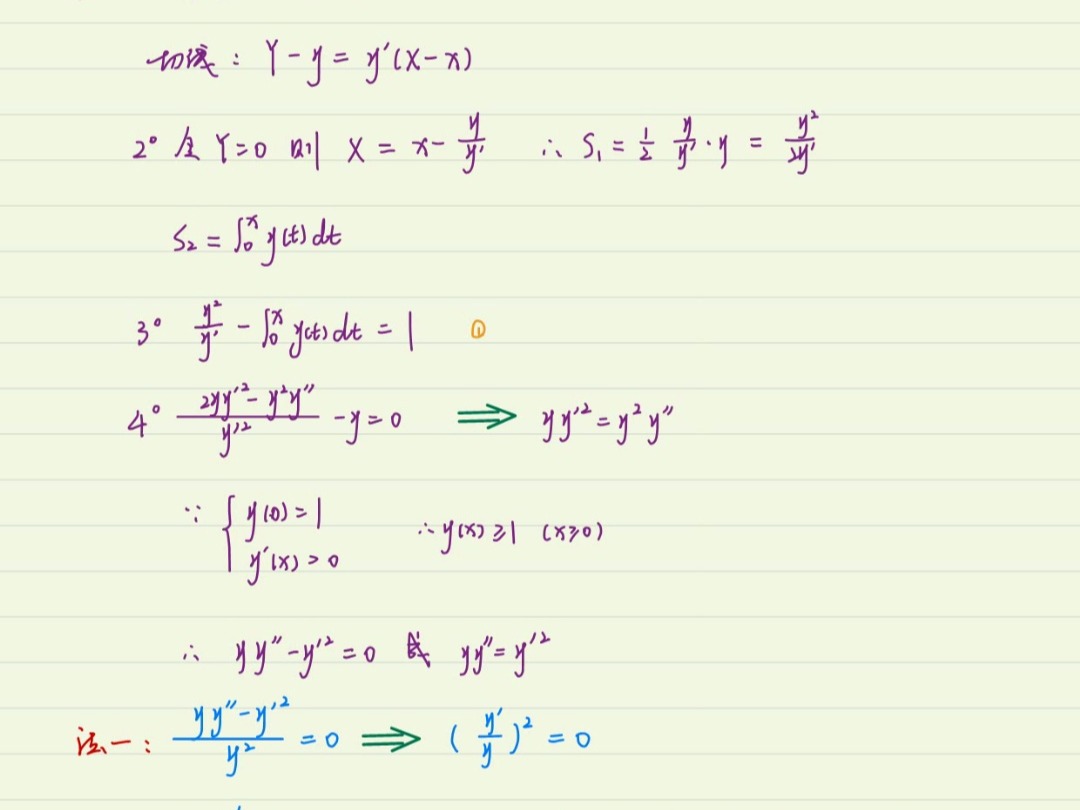 切线：Y-y=y'(X-x)
2° 令 Y=0 则 X=x-\frac{y}{y'} ∴ S₁=\frac{1}{2}\frac{y}{y'}·y=\frac{y²}{2y'}
S₂=∫₀ˣ y(t)dt
3° \frac{y²}{y'}-∫₀ˣ y(t)dt=1 ①
4° \frac{2yy'²-y²y''}{y'²}-y=0 ⟹ yy'²=y²y''
∵ { y(0)=1
y'(x)>0 ∴ y(x)≥1 (x≥0)
∴ yy''-y'²=0 或 yy''=y'²
法一：\frac{yy''-y'²}{y²}=0 ⟹ (\frac{y'}{y})²=0